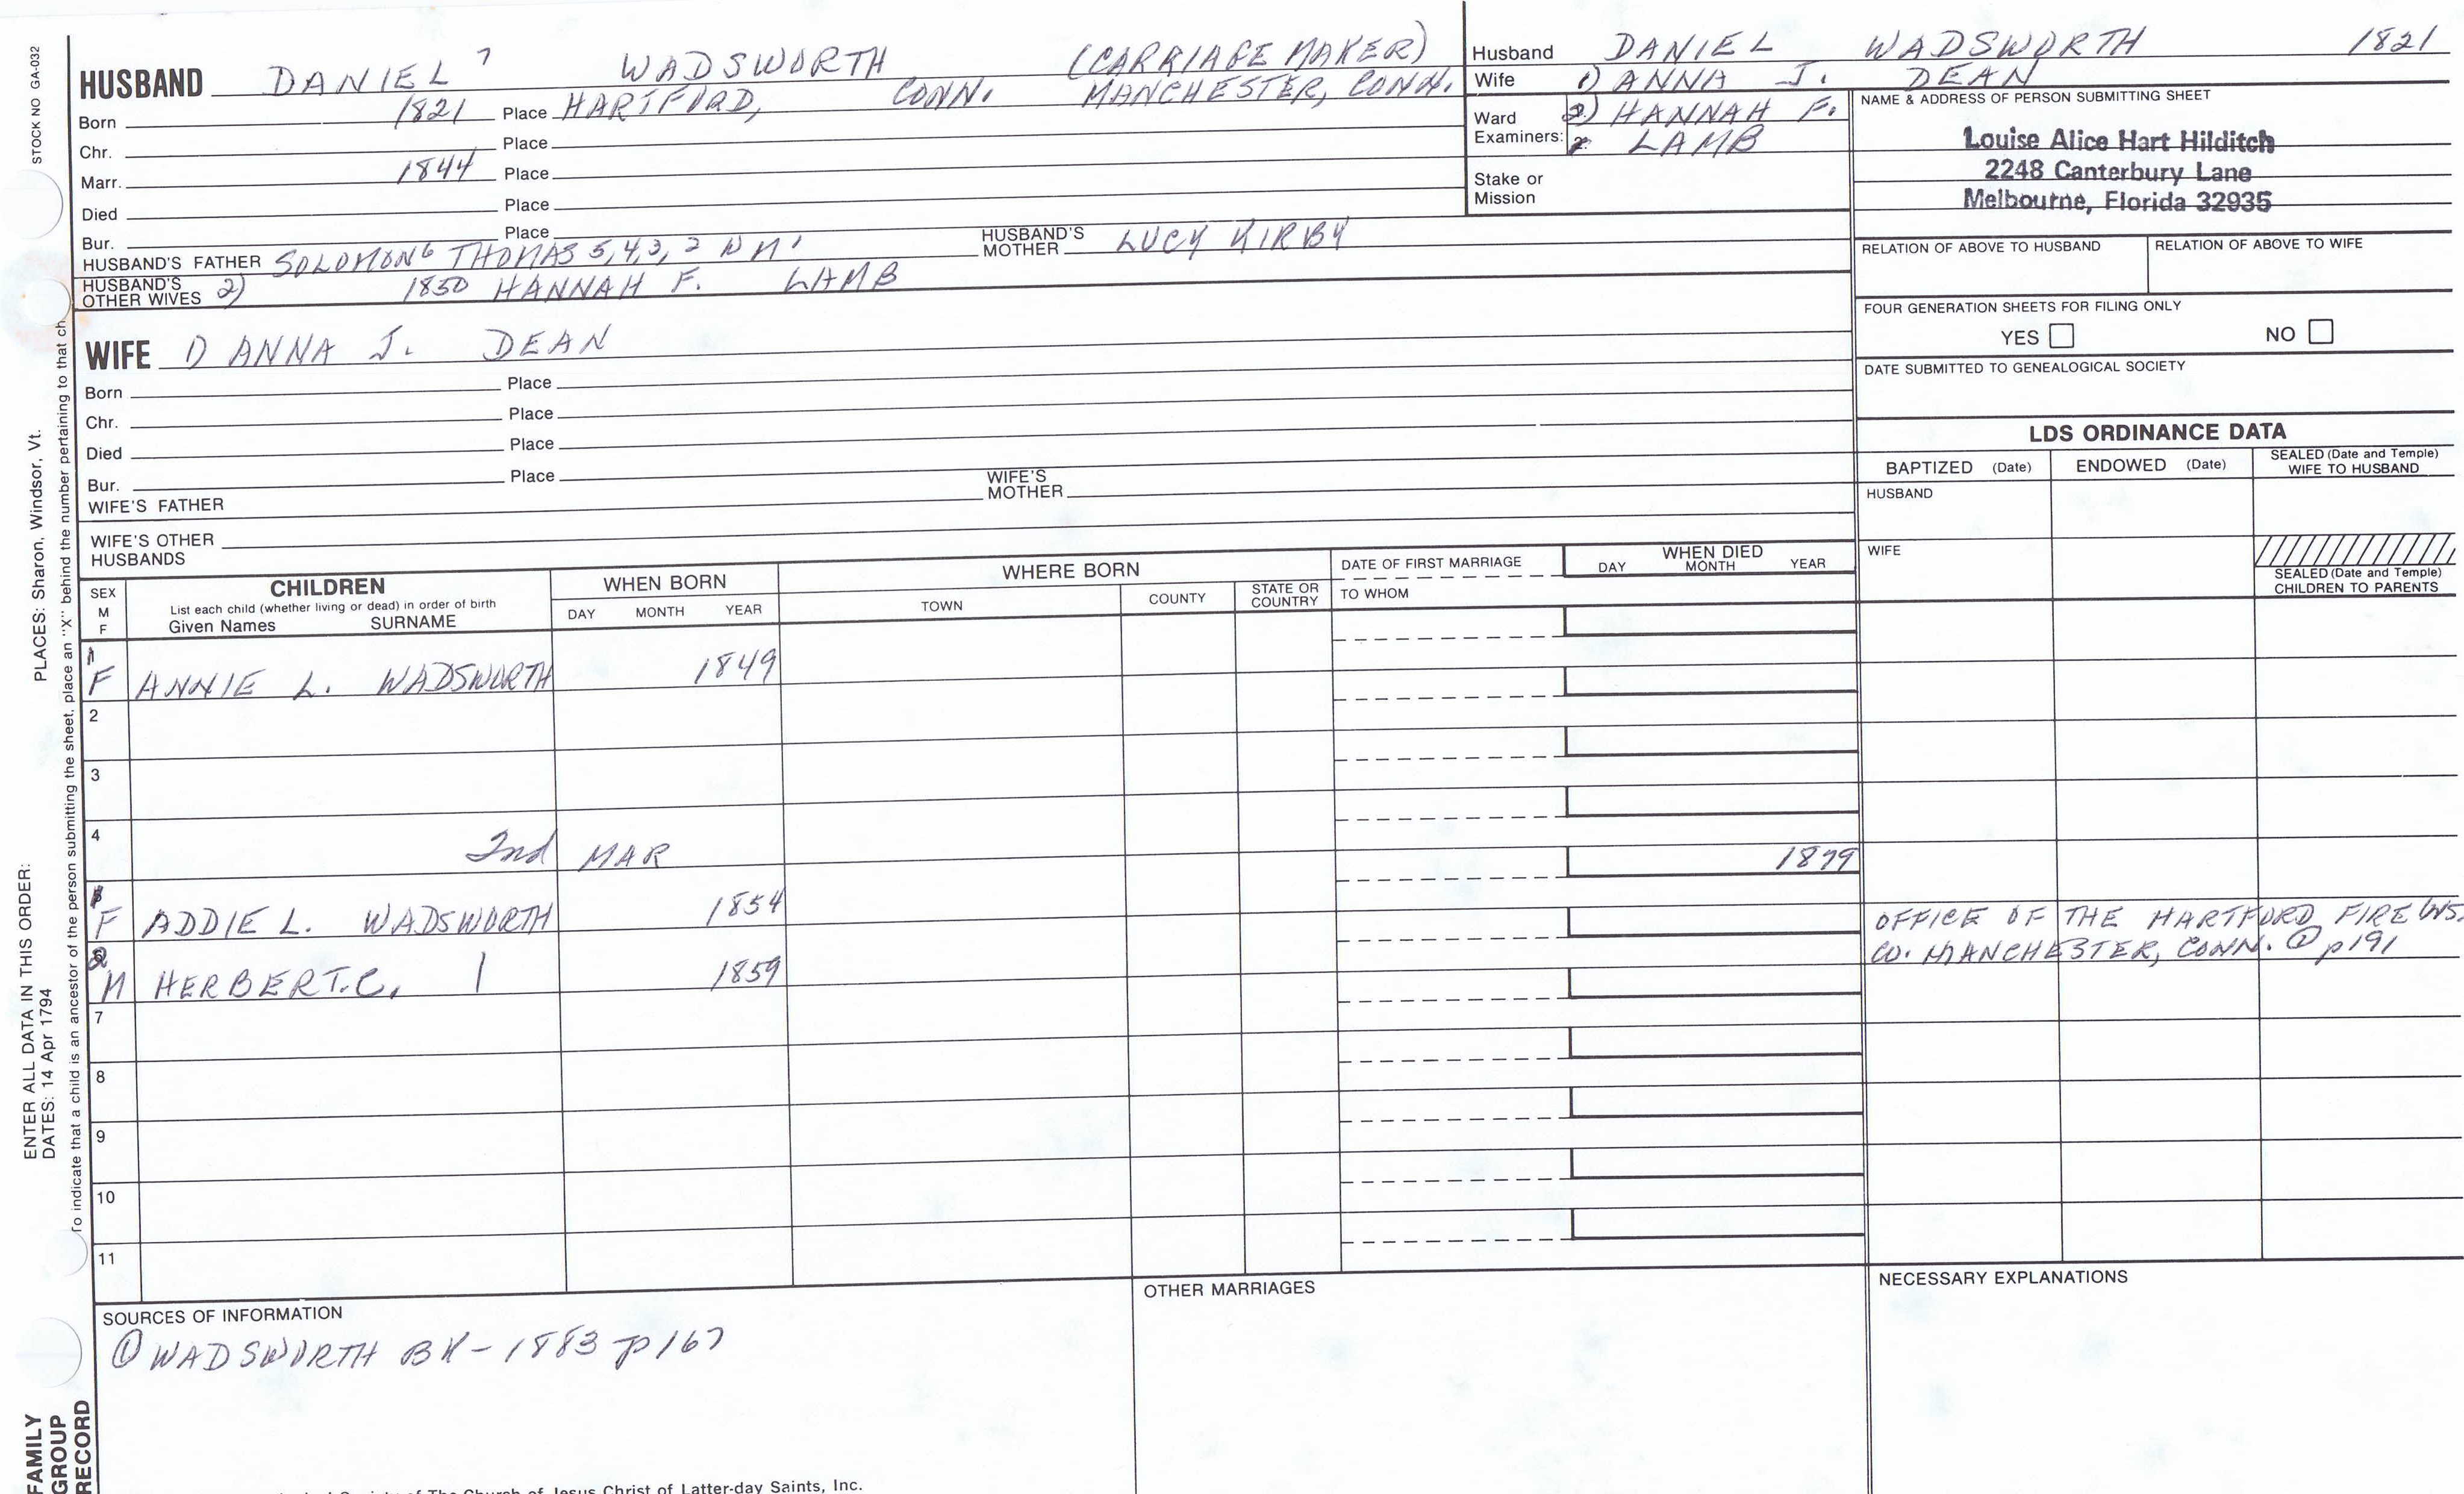 STOCK NO GA-032
HUSBAND DANIEL 7 WADSWORTH (CARRIAGE MAKER)
Born 1821 Place HARTFORD, CONN. MANCHESTER, CONN.
Chr. Place
Marr. 1844 Place
Died Place
Bur. Place
HUSBAND'S FATHER SOLOMON 6 THOMAS 5,4,3,2 WM 1 HUSBAND'S MOTHER LUCY KIRBY
HUSBAND'S OTHER WIVES 2) 1850 HANNAH F. LAMB
WIFE 1) ANNA J. DEAN
Born Place
Chr. Place
Died Place
Bur. Place
WIFE'S FATHER WIFE'S MOTHER
WIFE'S OTHER HUSBANDS
Husband DANIEL WADSWORTH 1821
Wife 1) ANNA J. DEAN
Ward 2) HANNAH F.
Examiners: LAMB
Stake or
Mission
NAME & ADDRESS OF PERSON SUBMITTING SHEET
Louise Alice Hart Hilditch
2248 Canterbury Lane
Melbourne, Florida 32935
RELATION OF ABOVE TO HUSBAND RELATION OF ABOVE TO WIFE
FOUR GENERATION SHEETS FOR FILING ONLY
YES NO
DATE SUBMITTED TO GENEALOGICAL SOCIETY
LDS ORDINANCE DATA
BAPTIZED (Date) ENDOWED (Date) SEALED (Date and Temple) WIFE TO HUSBAND
HUSBAND
WIFE
SEALED (Date and Temple)
CHILDREN TO PARENTS
SEX M F CHILDREN WHEN BORN WHERE BORN DATE OF FIRST MARRIAGE WHEN DIED
List each child (whether living or dead) in order of birth
Given Names SURNAME DAY MONTH YEAR TOWN COUNTY STATE OR COUNTRY TO WHOM DAY MONTH YEAR
1
F ANNIE L. WADSWORTH 1849
2
3
4
2nd MAR 1879
F ADDIE L. WADSWORTH 1854
OFFICE OF THE HARTFORD FIRE INS.
CO. MANCHESTER, CONN. ① p191
2
M HERBERT.C. | 1859
7
8
9
10
11
SOURCES OF INFORMATION
① WADSWORTH BK - 1883 p 167
OTHER MARRIAGES
NECESSARY EXPLANATIONS
of The Church of Jesus Christ of Latter-day Saints, Inc.
PLACES: Sharon, Windsor, Vt.
ENTER ALL DATA IN THIS ORDER:
DATES: 14 Apr 1794
To indicate that a child is an ancestor of the person submitting the sheet, place an "X" behind the number pertaining to that ch
FAMILY
GROUP
RECORD